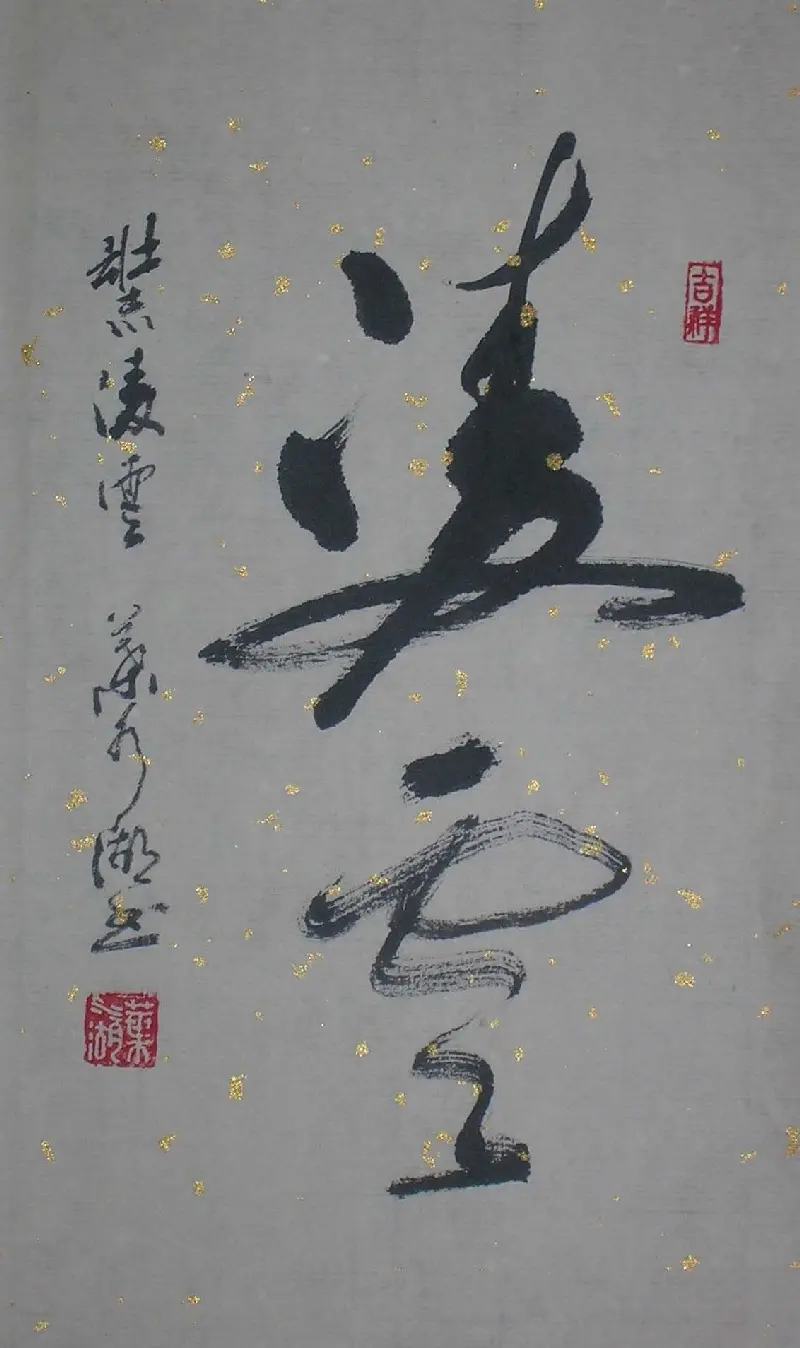 吉祥
凌雲
壯志凌雲 葉 湖書
葉 湖